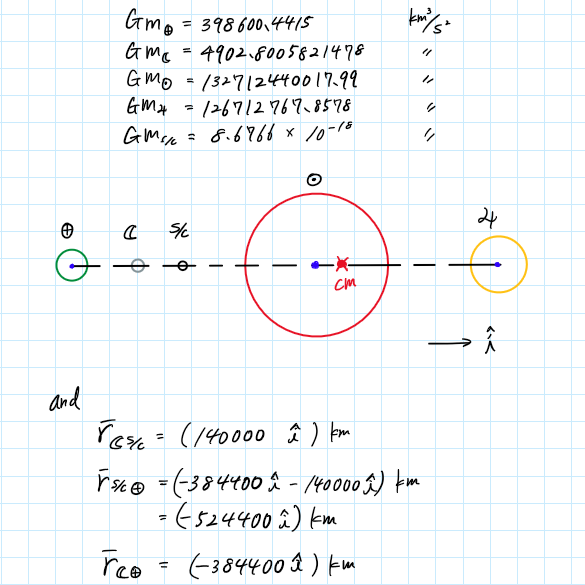 Gm⊕ = 398600.4415 km³/s²
Gm☾ = 4902.8005821478 〃
Gm☉ = 132712440017.99 〃
Gm♃ = 126712767.8578 〃
Gm s/c = 8.6766 × 10⁻¹⁸ 〃
☉
⊕ ☾ s/c ♃
cm
→ î
and
r̄☾s/c = (140000 î) km
r̄s/c⊕ = (-384400 î - 140000 î) km
= (-524400 î) km
r̄☾⊕ = (-384400 î) km